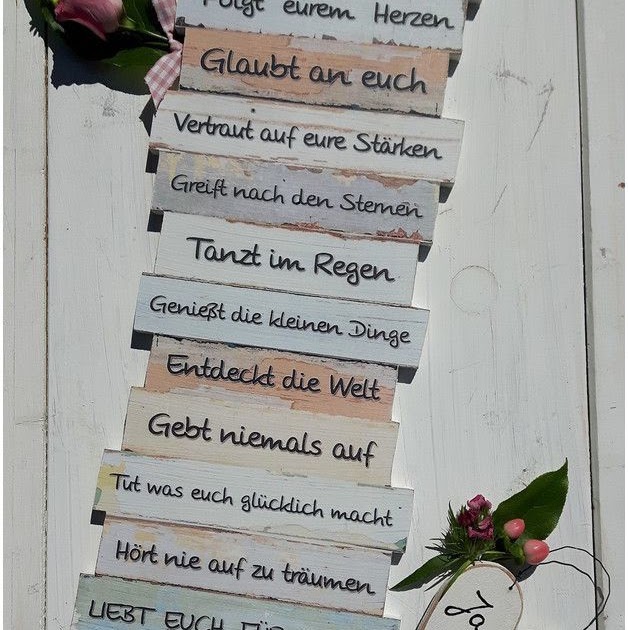 Folgt eurem Herzen
Glaubt an euch
Vertraut auf eure Stärken
Greift nach den Sternen
Tanzt im Regen
Genießt die kleinen Dinge
Entdeckt die Welt
Gebt niemals auf
Tut was euch glücklich macht
Hört nie auf zu träumen
LIEBT EUCH FÜR